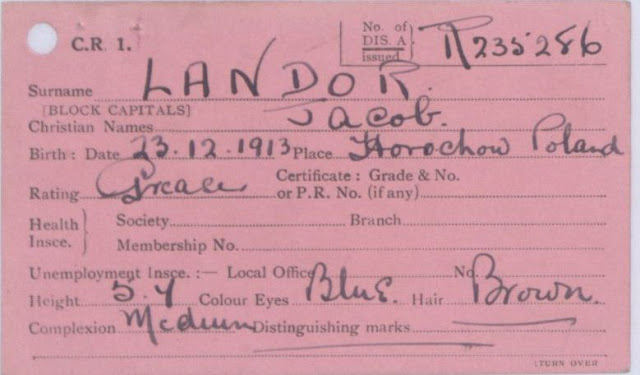 C.R. 1.
No. of DIS. A issued } R235286
Surname LANDOR.
[BLOCK CAPITALS]
Christian Names Jacob.
Birth: Date 23.12.1913 Place Horochow Poland
Certificate: Grade & No.
Rating Greaser or P.R. No. (if any)
Health Insce. } Society Branch
Membership No.
Unemployment Insce.:— Local Office No.
Height 5.4 Colour Eyes Blue. Hair Brown.
Complexion Medium Distinguishing marks
[TURN OVER